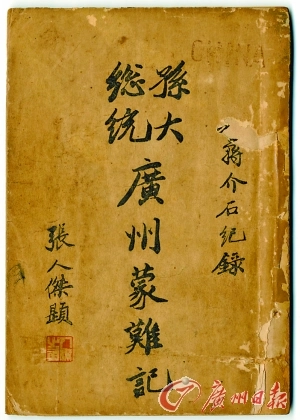 CHINA
蔣介石紀錄
孫大
總統
廣州蒙難記
張人傑題
廣州日報